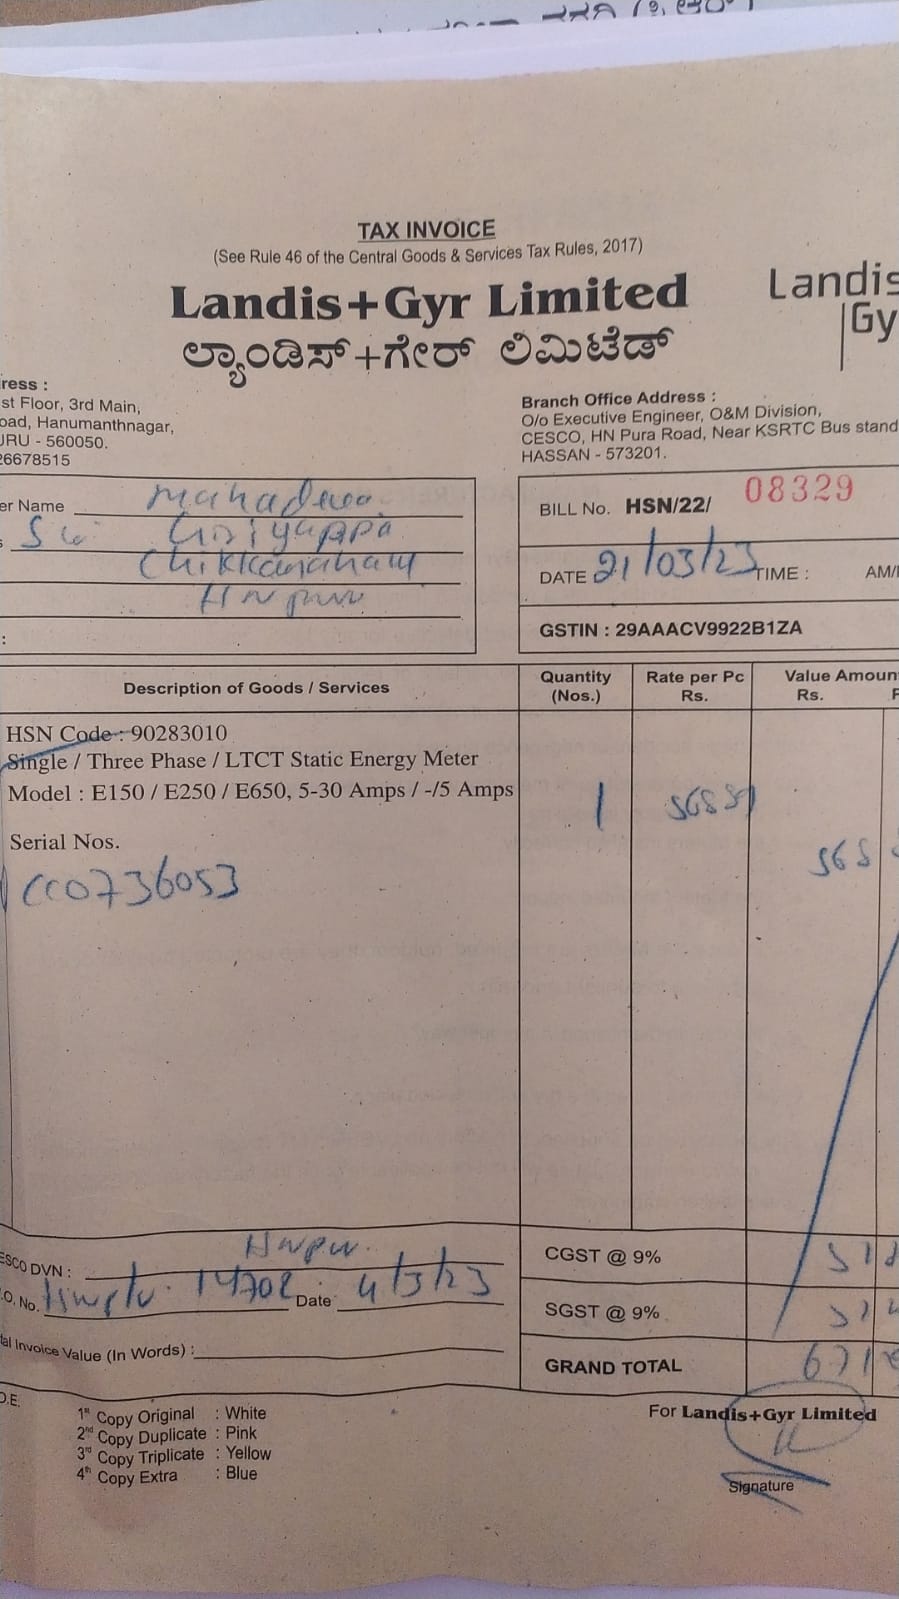 TAX INVOICE
(See Rule 46 of the Central Goods & Services Tax Rules, 2017)
Landis+Gyr Limited
Landis
Gy
ಲ್ಯಾಂಡಿಸ್+ಗೇರ್ ಲಿಮಿಟೆಡ್
ress :
st Floor, 3rd Main,
oad, Hanumanthnagar,
URU - 560050.
26678515
Branch Office Address :
O/o Executive Engineer, O&M Division,
CESCO, HN Pura Road, Near KSRTC Bus stand
HASSAN - 573201.
er Name Mahadeva
Chikkanahally
BILL No. HSN/22/ 08329
DATE 21/03/23 TIME : AM/
GSTIN : 29AAACV9922B1ZA
Description of Goods / Services
Quantity (Nos.)
Rate per Pc Rs.
Value Amoun Rs.
HSN Code : 90283010
Single / Three Phase / LTCT Static Energy Meter
Model : E150 / E250 / E650, 5-30 Amps / -/5 Amps
1
Serial Nos.
CC0736053
ESCO DVN : Hnpur
.O. No. 14702 Date 4/3/23
tal Invoice Value (In Words) :
CGST @ 9%
SGST @ 9%
GRAND TOTAL
O.E.
1st Copy Original : White
2nd Copy Duplicate : Pink
3rd Copy Triplicate : Yellow
4th Copy Extra : Blue
For Landis+Gyr Limited
Signature